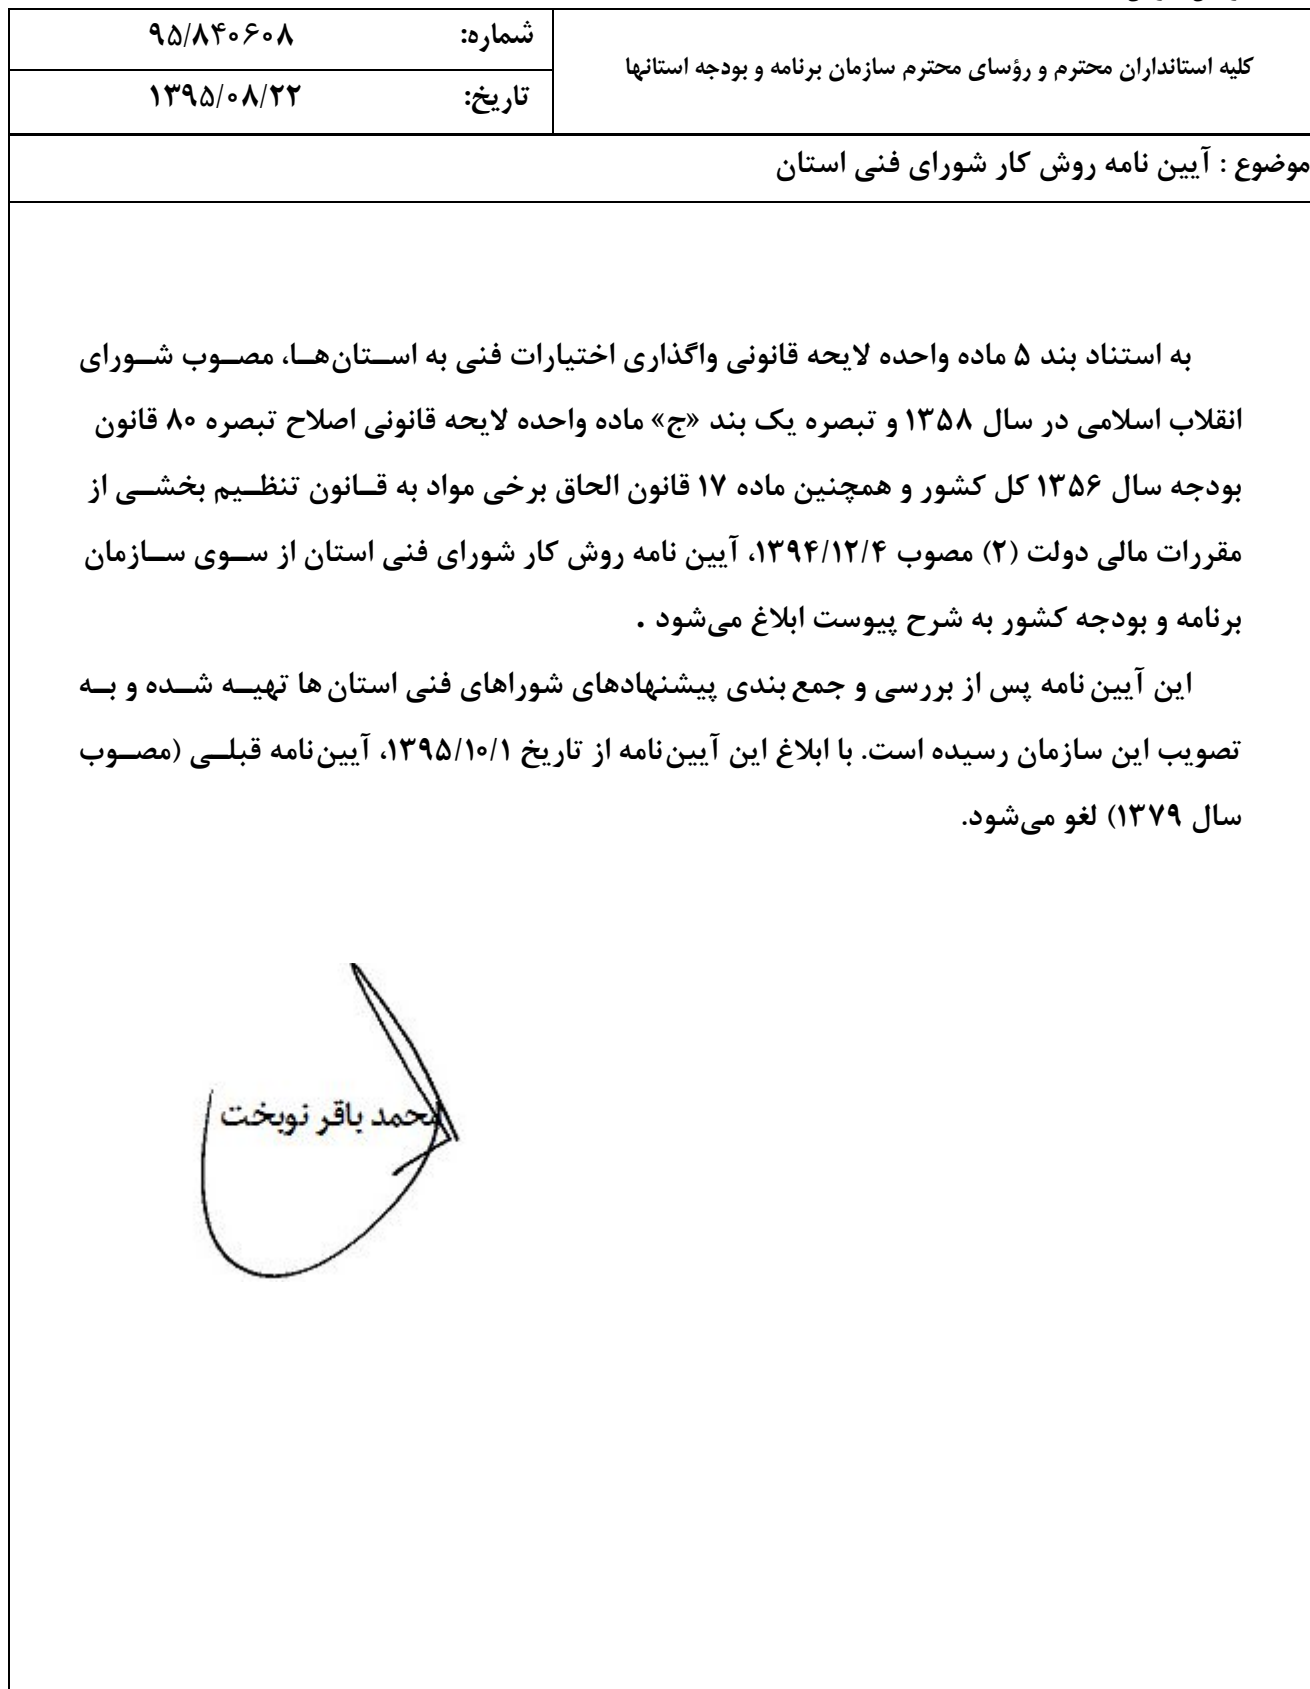 کلیه استانداران محترم و رؤسای محترم سازمان برنامه و بودجه استانها
شماره: ۹۵/۸۴۰۶۰۸
تاریخ: ۱۳۹۵/۰۸/۲۲
موضوع : آیین نامه روش کار شورای فنی استان
به استناد بند ۵ ماده واحده لایحه قانونی واگذاری اختیارات فنی به استان‌ها، مصوب شورای
انقلاب اسلامی در سال ۱۳۵۸ و تبصره یک بند «ج» ماده واحده لایحه قانونی اصلاح تبصره ۸۰ قانون
بودجه سال ۱۳۵۶ کل کشور و همچنین ماده ۱۷ قانون الحاق برخی مواد به قانون تنظیم بخشی از
مقررات مالی دولت (۲) مصوب ۱۳۹۴/۱۲/۴، آیین نامه روش کار شورای فنی استان از سوی سازمان
برنامه و بودجه کشور به شرح پیوست ابلاغ می‌شود .
این آیین نامه پس از بررسی و جمع بندی پیشنهادهای شوراهای فنی استان ها تهیه شده و به
تصویب این سازمان رسیده است. با ابلاغ این آیین‌نامه از تاریخ ۱۳۹۵/۱۰/۱، آیین‌نامه قبلی (مصوب
سال ۱۳۷۹) لغو می‌شود.
محمد باقر نوبخت